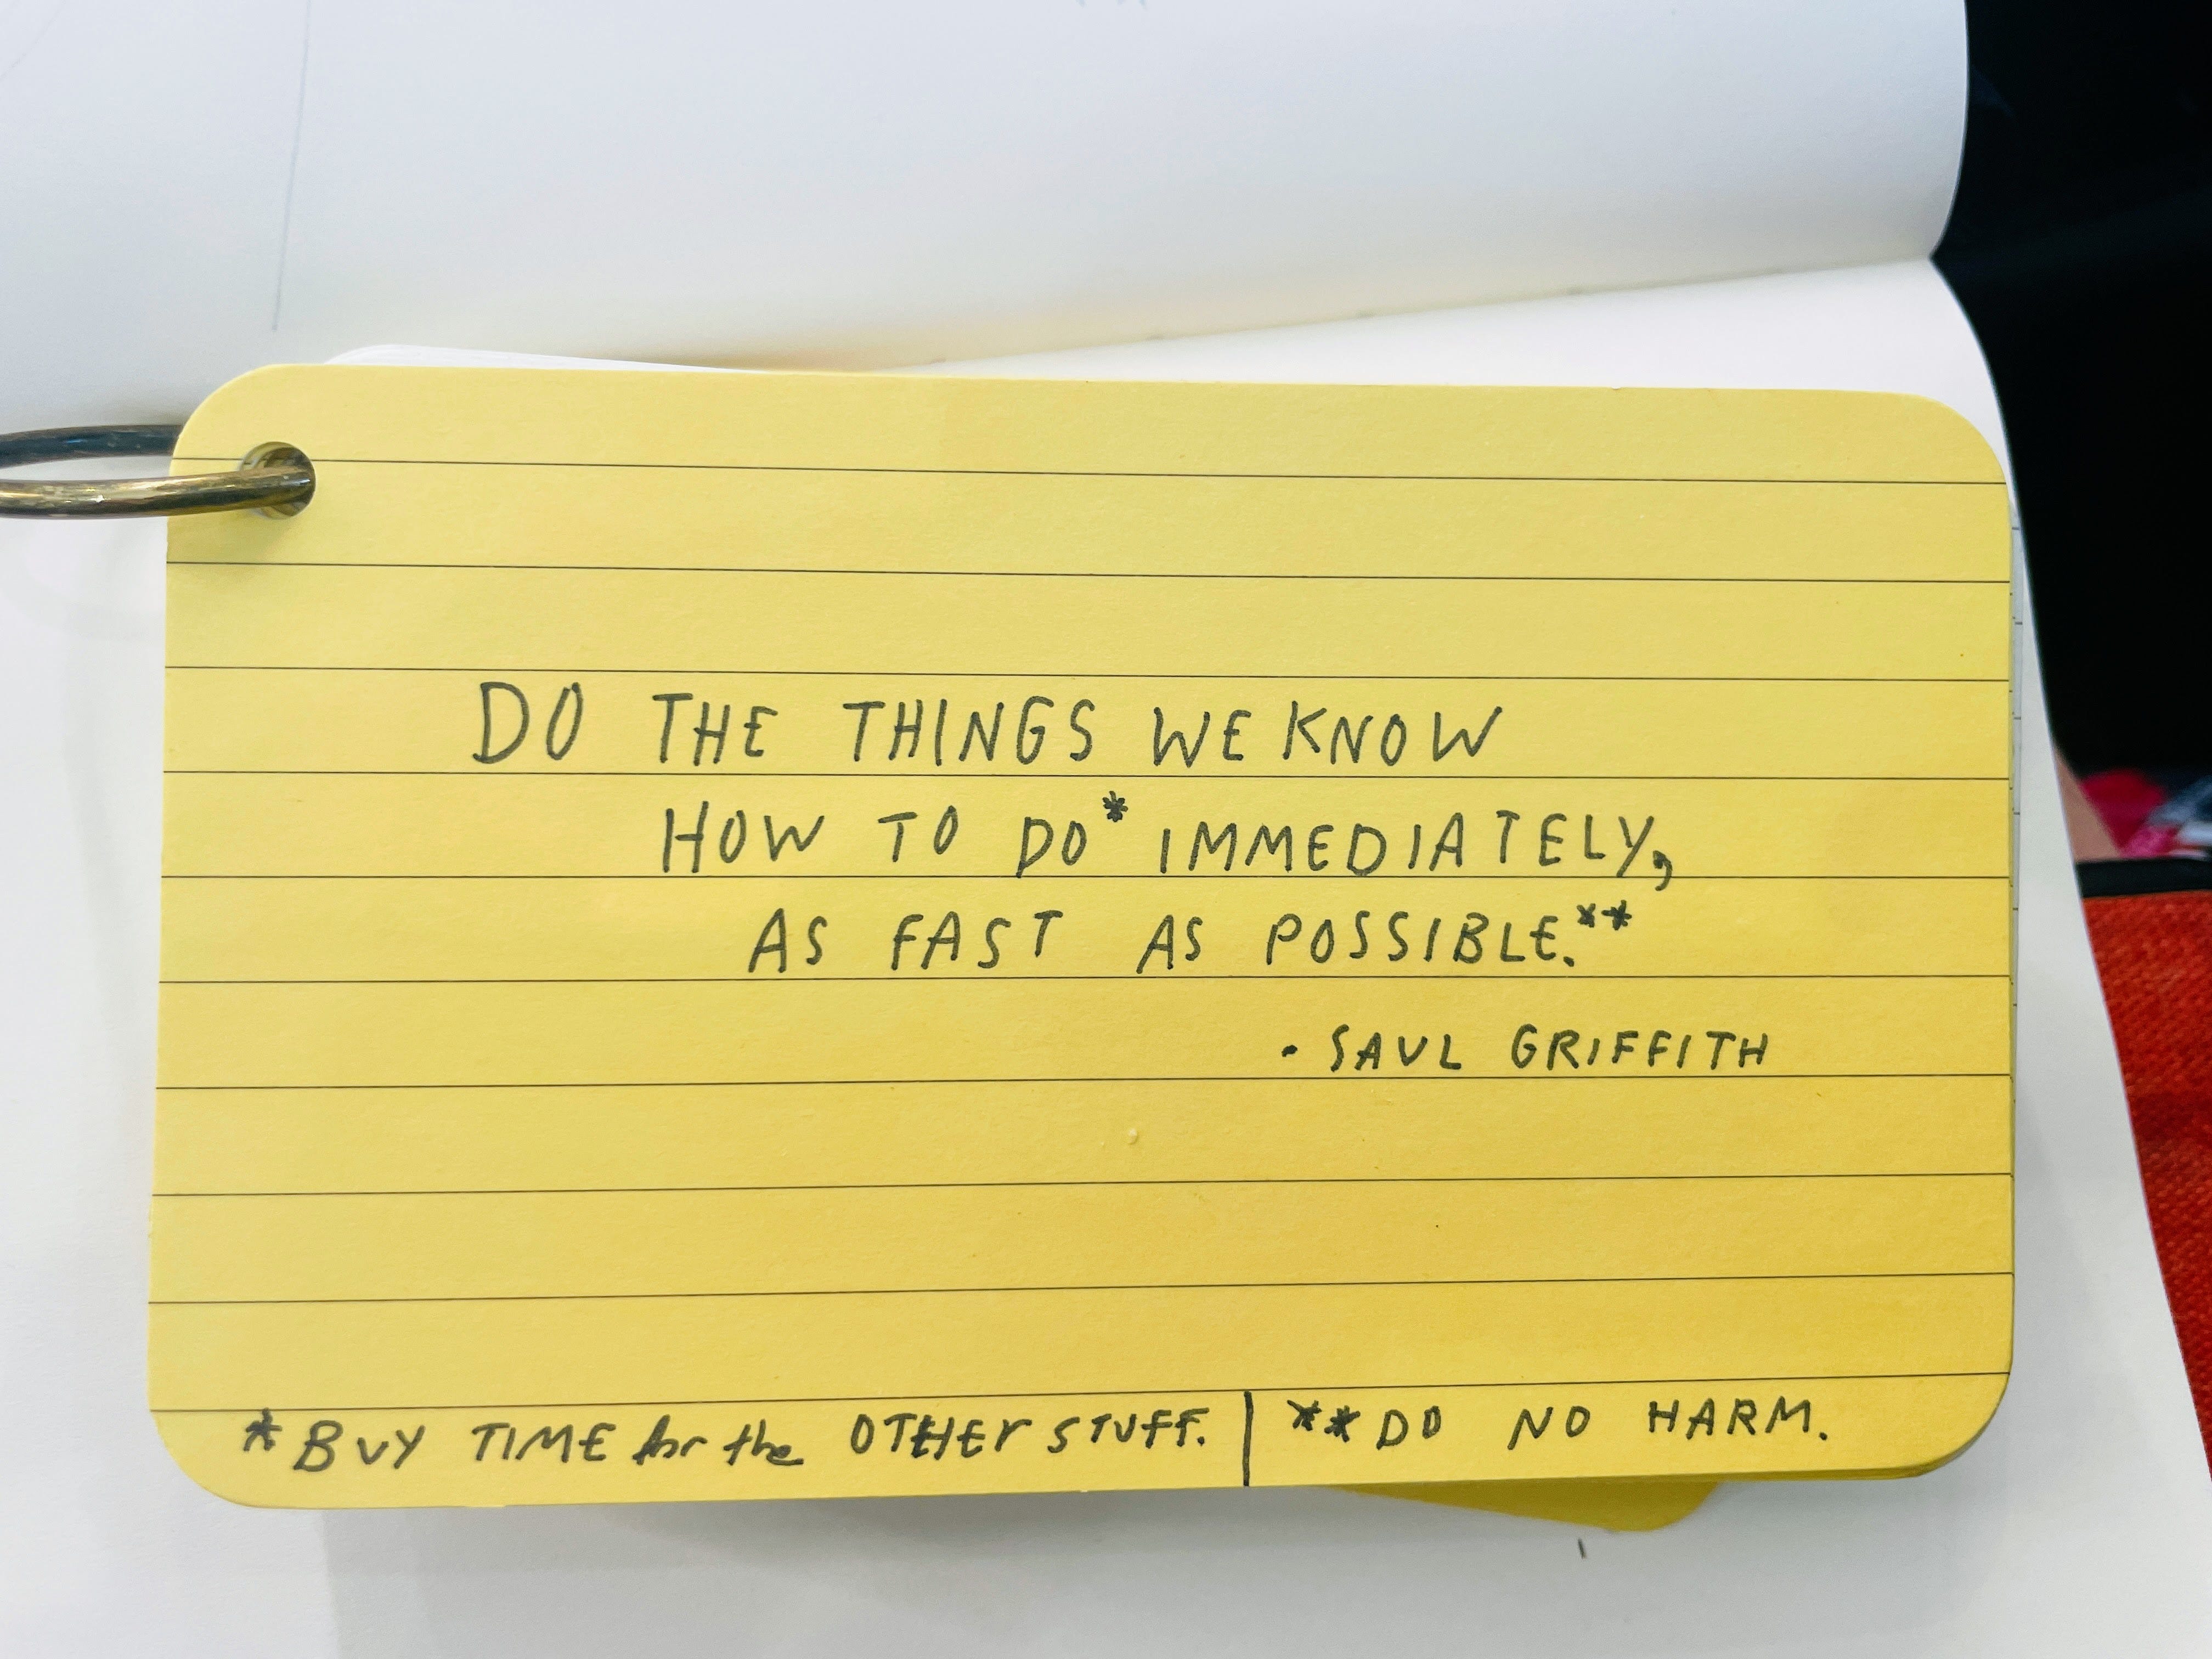 DO THE THINGS WE KNOW
HOW TO DO* IMMEDIATELY,
AS FAST AS POSSIBLE.**
- SAUL GRIFFITH
*BUY TIME for the OTHER STUFF. | **DO NO HARM.